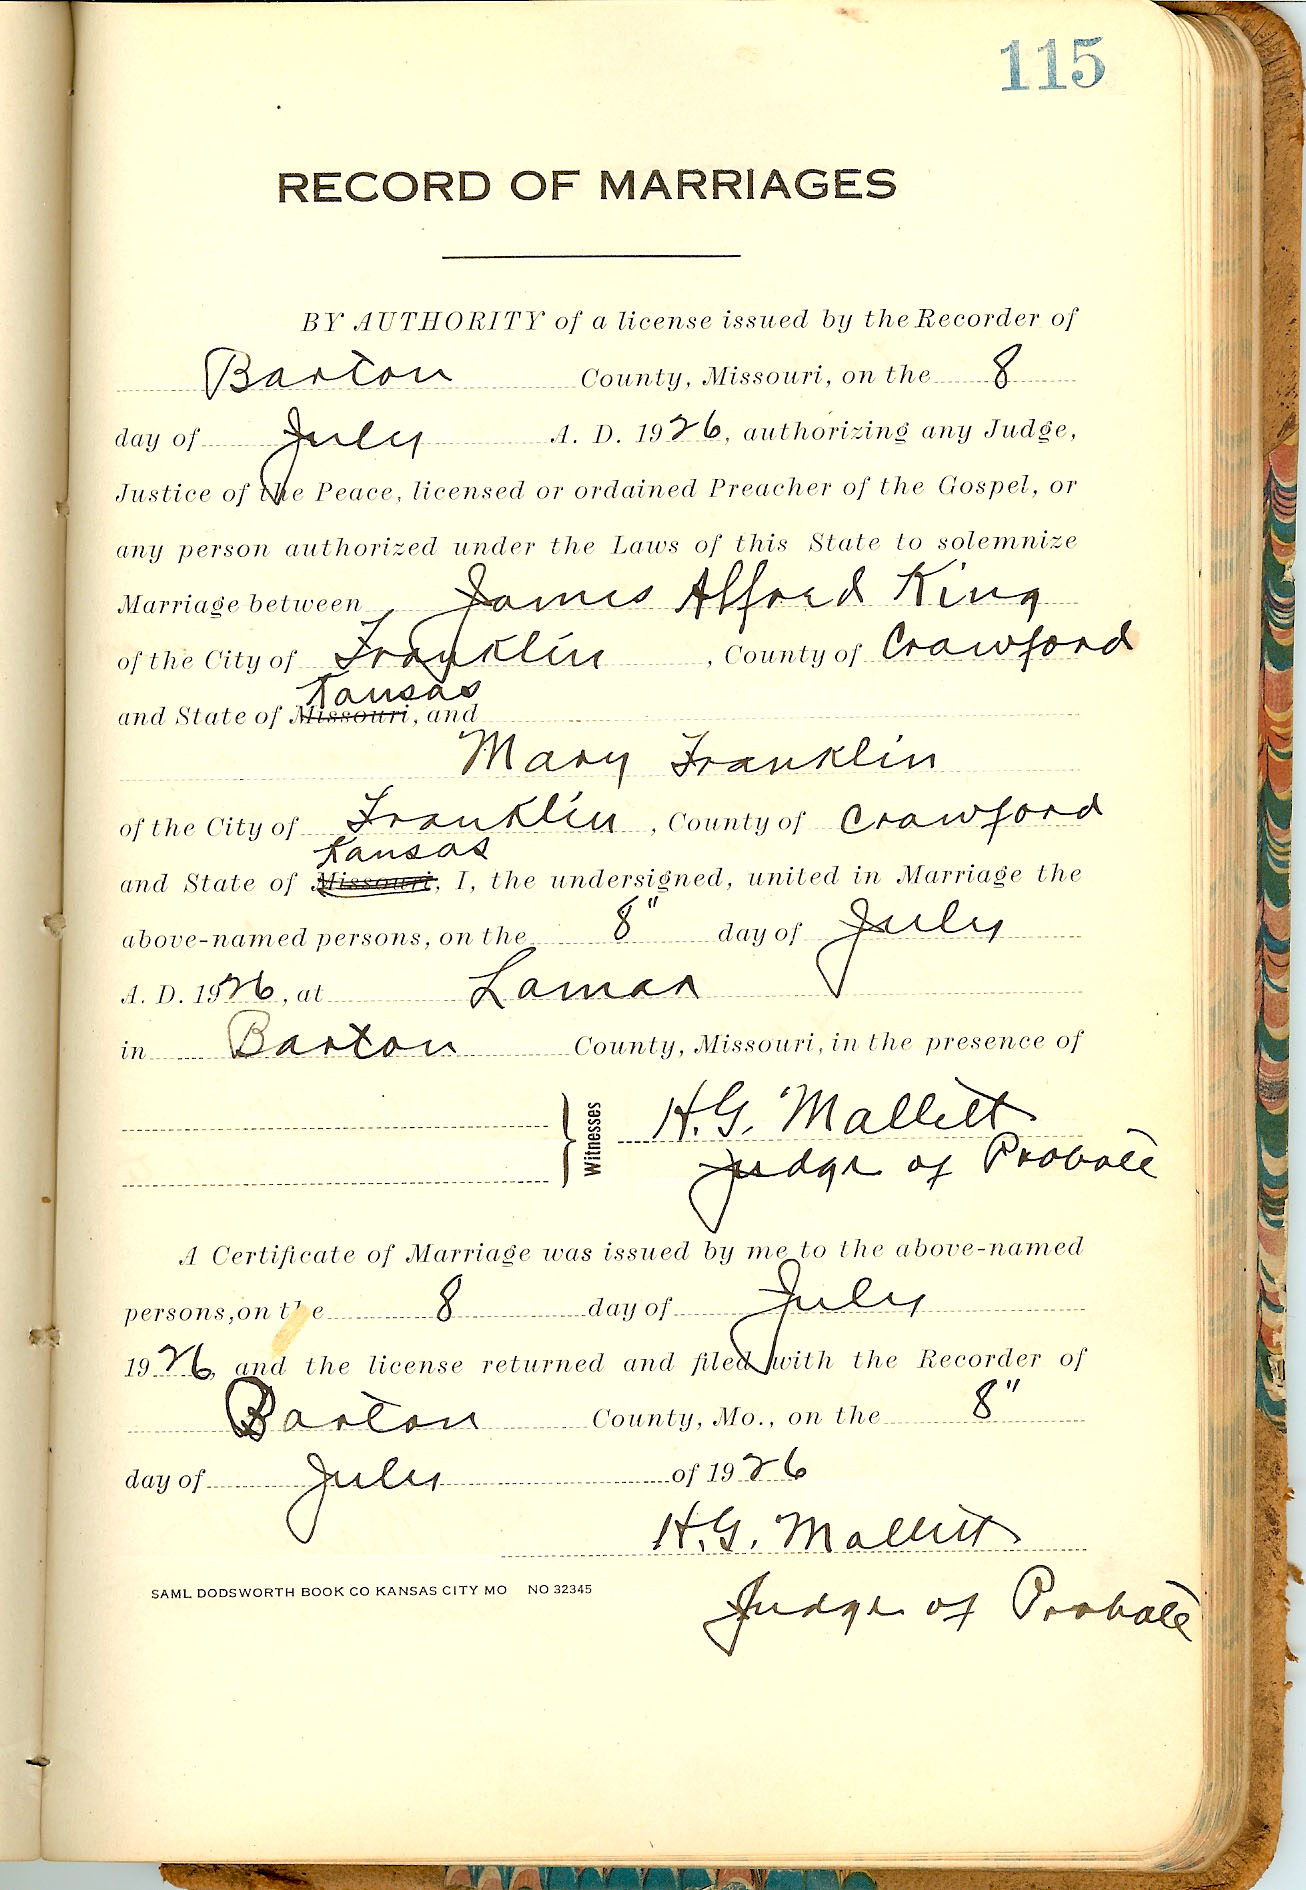 115
RECORD OF MARRIAGES
BY AUTHORITY of a license issued by the Recorder of
Barton County, Missouri, on the 8
day of July A. D. 1926, authorizing any Judge,
Justice of the Peace, licensed or ordained Preacher of the Gospel, or
any person authorized under the Laws of this State to solemnize
Marriage between James Alford King
of the City of Franklin, County of Crawford
Kansas
and State of Missouri, and
Mary Franklin
of the City of Franklin, County of Crawford
Kansas
and State of Missouri, I, the undersigned, united in Marriage the
above-named persons, on the 8" day of July
A. D. 1926, at Lamar
in Barton County, Missouri, in the presence of
Witnesses H. G. Mallitt
Judge of Probate
A Certificate of Marriage was issued by me to the above-named
persons, on the 8 day of July
1926, and the license returned and filed with the Recorder of
Barton County, Mo., on the 8"
day of July of 1926
H. G. Mallitt
SAML DODSWORTH BOOK CO KANSAS CITY MO NO 32345
Judge of Probate